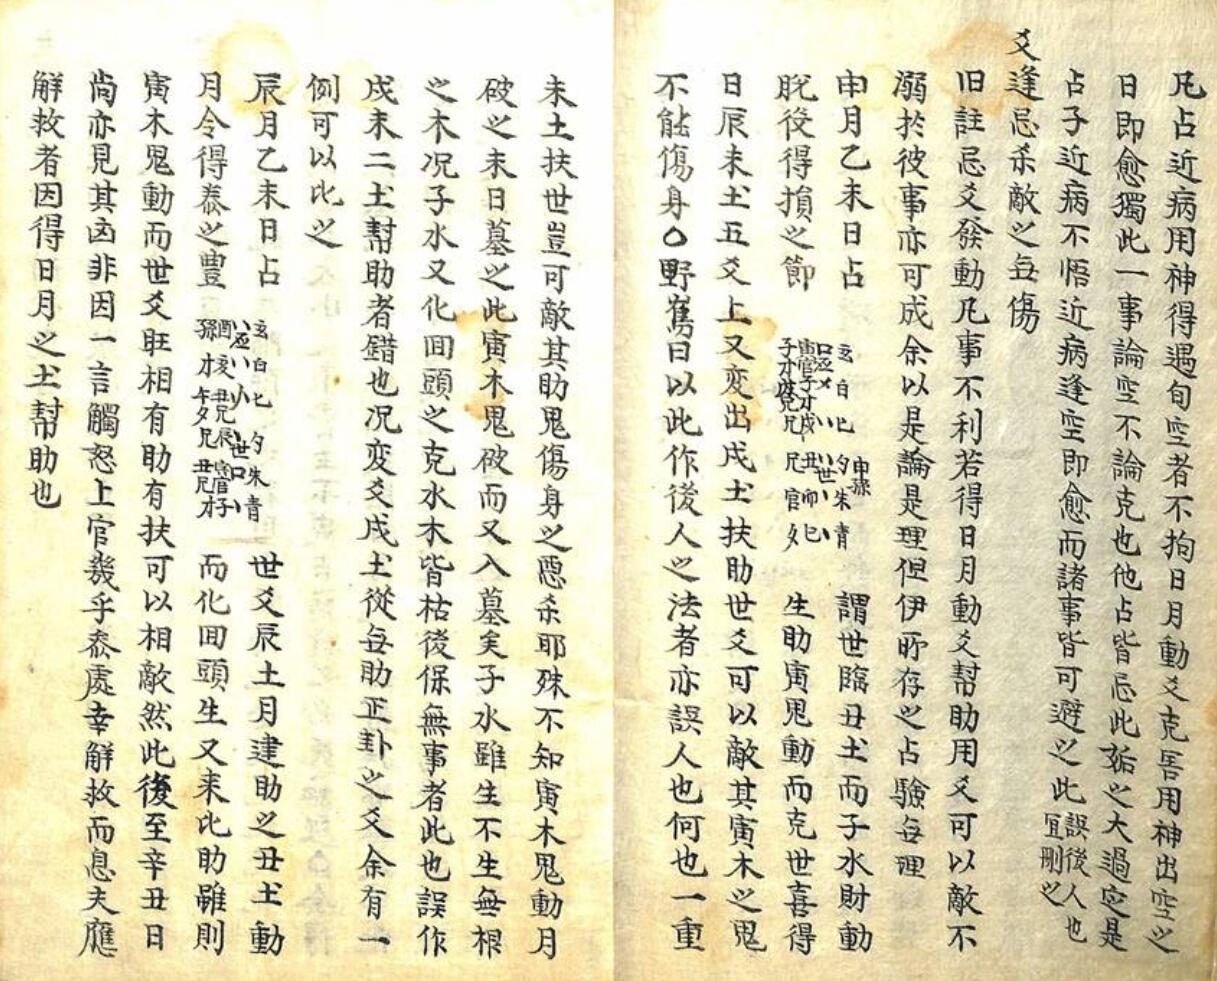 凡占近病用神得遇旬空者不拘日月動爻克害用神出空之
日即愈獨此一事論空不論克也他占皆忌此姤之大過空是
占子近病不悟近病逢空即愈而諸事皆可避之此誤後人也宜刪之
爻逢忌杀敵之毎傷
旧註忌爻發動凡事不利若得日月動爻幇助用爻可以敵不
溺於彼事亦可成余以是論是理但伊所存之占驗毎理
申月乙未日占
脫役得損之節
謂世臨丑土而子水財動
生助寅鬼動而克世喜得
日辰未土五爻上又変出戌土扶助世爻可以敵其寅木之鬼
不能傷身〇野寉曰以此作後人之法者亦誤人也何也一重
未土扶世豈可敵其助鬼傷身之惡杀耶殊不知寅木鬼動月
破之未日墓之此寅木鬼破而又入墓矣子水雖生不生無根
之木况子水又化囬頭之克水木皆枯後保無事者此也誤作
戌未二土幇助者錯也况変爻戌土從毎助正卦之爻余有一
例可以比之
辰月乙未日占
月令得泰之豐
世爻辰土月建助之丑土動
而化囬頭生又来比助雖則
寅木鬼動而世爻旺相有助有扶可以相敵然此後至辛丑日
尚亦見其凶非因一言觸怒上官幾乎叅處幸解救而息夫應
解救者因得日月之土幇助也